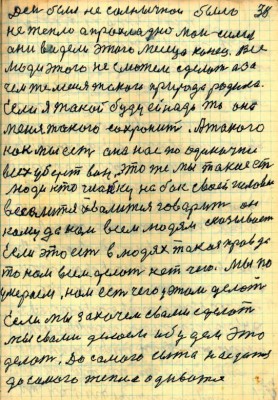 Ден был не солнычное было 38
не тепло а прохладно мои сили
они видем этого месца конец. Все
люди этого не сможем сделат а за
чем же меня такого природа родила.
Если я такой буду ей надь то она
меня такого сохронит. А такого
как мы ест она нас по одиночки
всех уберет вон, это же мы такие ест
люди кто шапку на бок своей головы
валится хвалится говарыт он
кому да нам всем людям сказывает
Если это ест в людях такая правда
то нам всем делат нет чего. Мы по
умераем, нам ест чего з этом делат
Если мы захочем с вами сделат
мы с вами делаем и будем это
делат. До самого сыта наедатя
до самого тепла одыватя